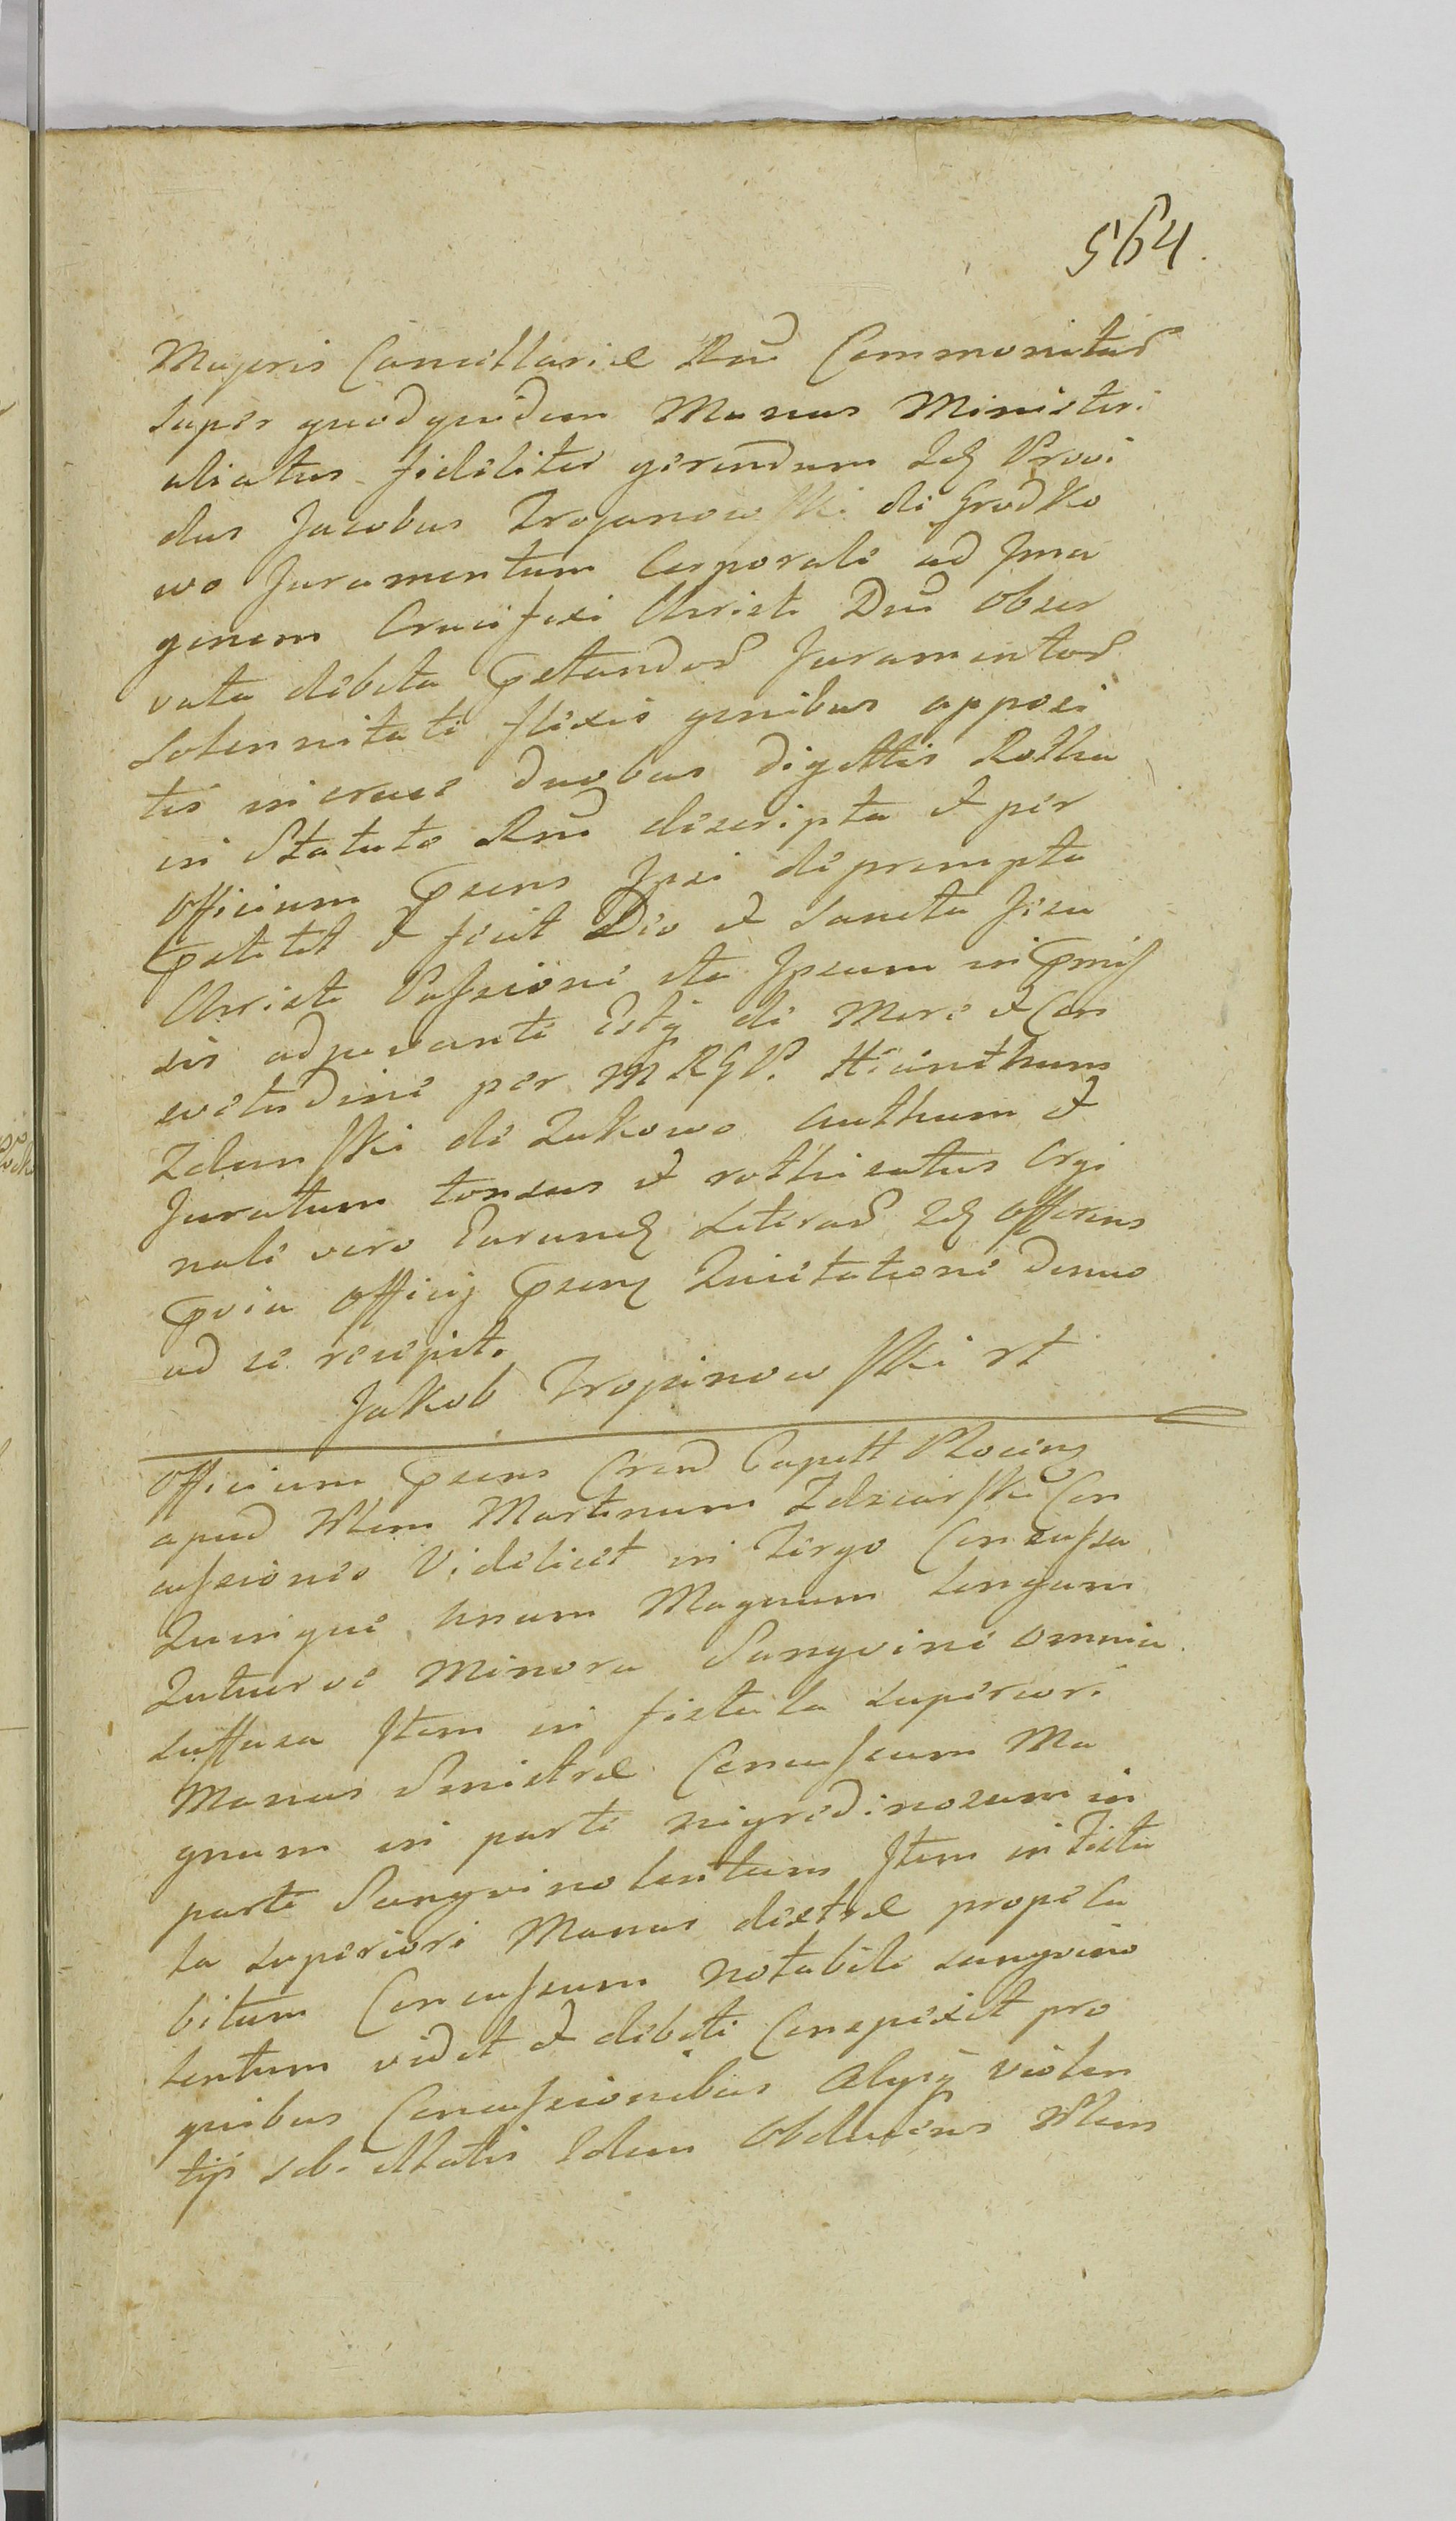 564.
Majoris Cancellariæ Rni Commonitus
super quodquidem Munus Ministeri
aliatus fideliter gerendum Idq Provi
dus Jacobus Trojanowski de Grodko
wo Juramentum Corporale ad Ima
ginem Crucifixi Christi Dni obser
vata debita pstandor Juramentor
Solennitate flexis genibus apposi
tis in cruce duobus digittis Rotha
in Statuto Rni descripta et per
Officium psens Ipsi deprompta
pstitit et fecit Deo et Sancta Jesu
Christi Passione ita Ipsum in pmis
sis adjuvante Estq de More et Con
svetudine per MRGP. Hiacinthum
Zdunski de Zukowo authum et
Juratum tonsus et rothisatus Ori
nali vero Earundq Literar Idq Offerens
pvia Officij psenq Quietatione denuo
ad se recepit.
Jakob Trojanowski rt
Officium psens Crend Capett Plocens
apud Wlem Martinum Zdziarski Con
cussiones Videlicet in Tergo Concussa
Quinque Unum Magnum Longum
Quatuor ve Minora Sangvine omnia
suffusa Item in fistula superiori
Manus Sinistræ Concussum Ma
gnum in parte nigredinosum in
parte Sangvinolentum Item in Fistu
la superiori Manus dextræ prope Cu
bitum Concussum notabile sangvino
lentum vidit et debite Conspexit pro
quibus Concussionibus Alysq violen
tijs sib. Illatis Idem Obducens Wlem